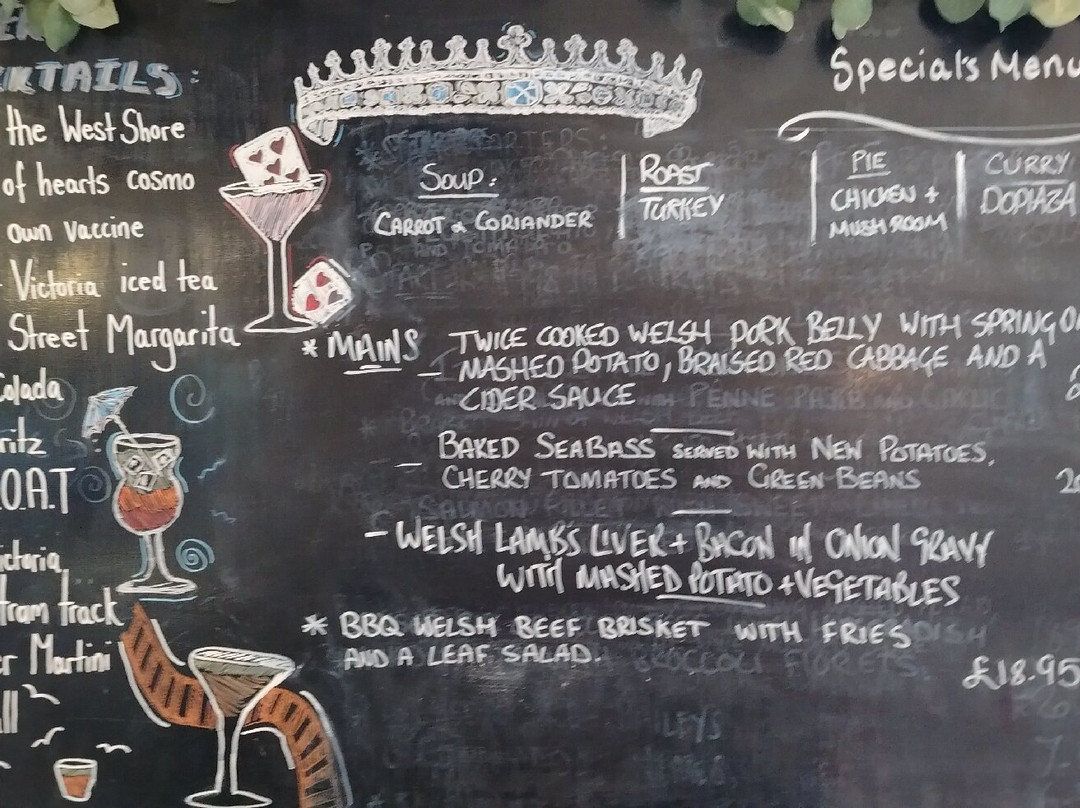 KTAILS:
the West Shore
of hearts cosmo
own vaccine
Victoria iced tea
Street Margarita
Colada
ritz
O.A.T
ictoria
tram track
er Martini
ll
Specials Menu
SOUP:
CARROT & CORIANDER
ROAST
TURKEY
PIE
CHICKEN +
MUSHROOM
CURRY
DOPIAZA
* MAINS
- TWICE COOKED WELSH PORK BELLY WITH SPRING O
MASHED POTATO, BRAISED RED CABBAGE AND A
CIDER SAUCE
- BAKED SEABASS SERVED WITH NEW POTATOES,
CHERRY TOMATOES AND GREEN BEANS
- WELSH LAMBS LIVER + BACON IN ONION GRAVY
WITH MASHED POTATO + VEGETABLES
* BBQ WELSH BEEF BRISKET WITH FRIES
AND A LEAF SALAD.
£18.95